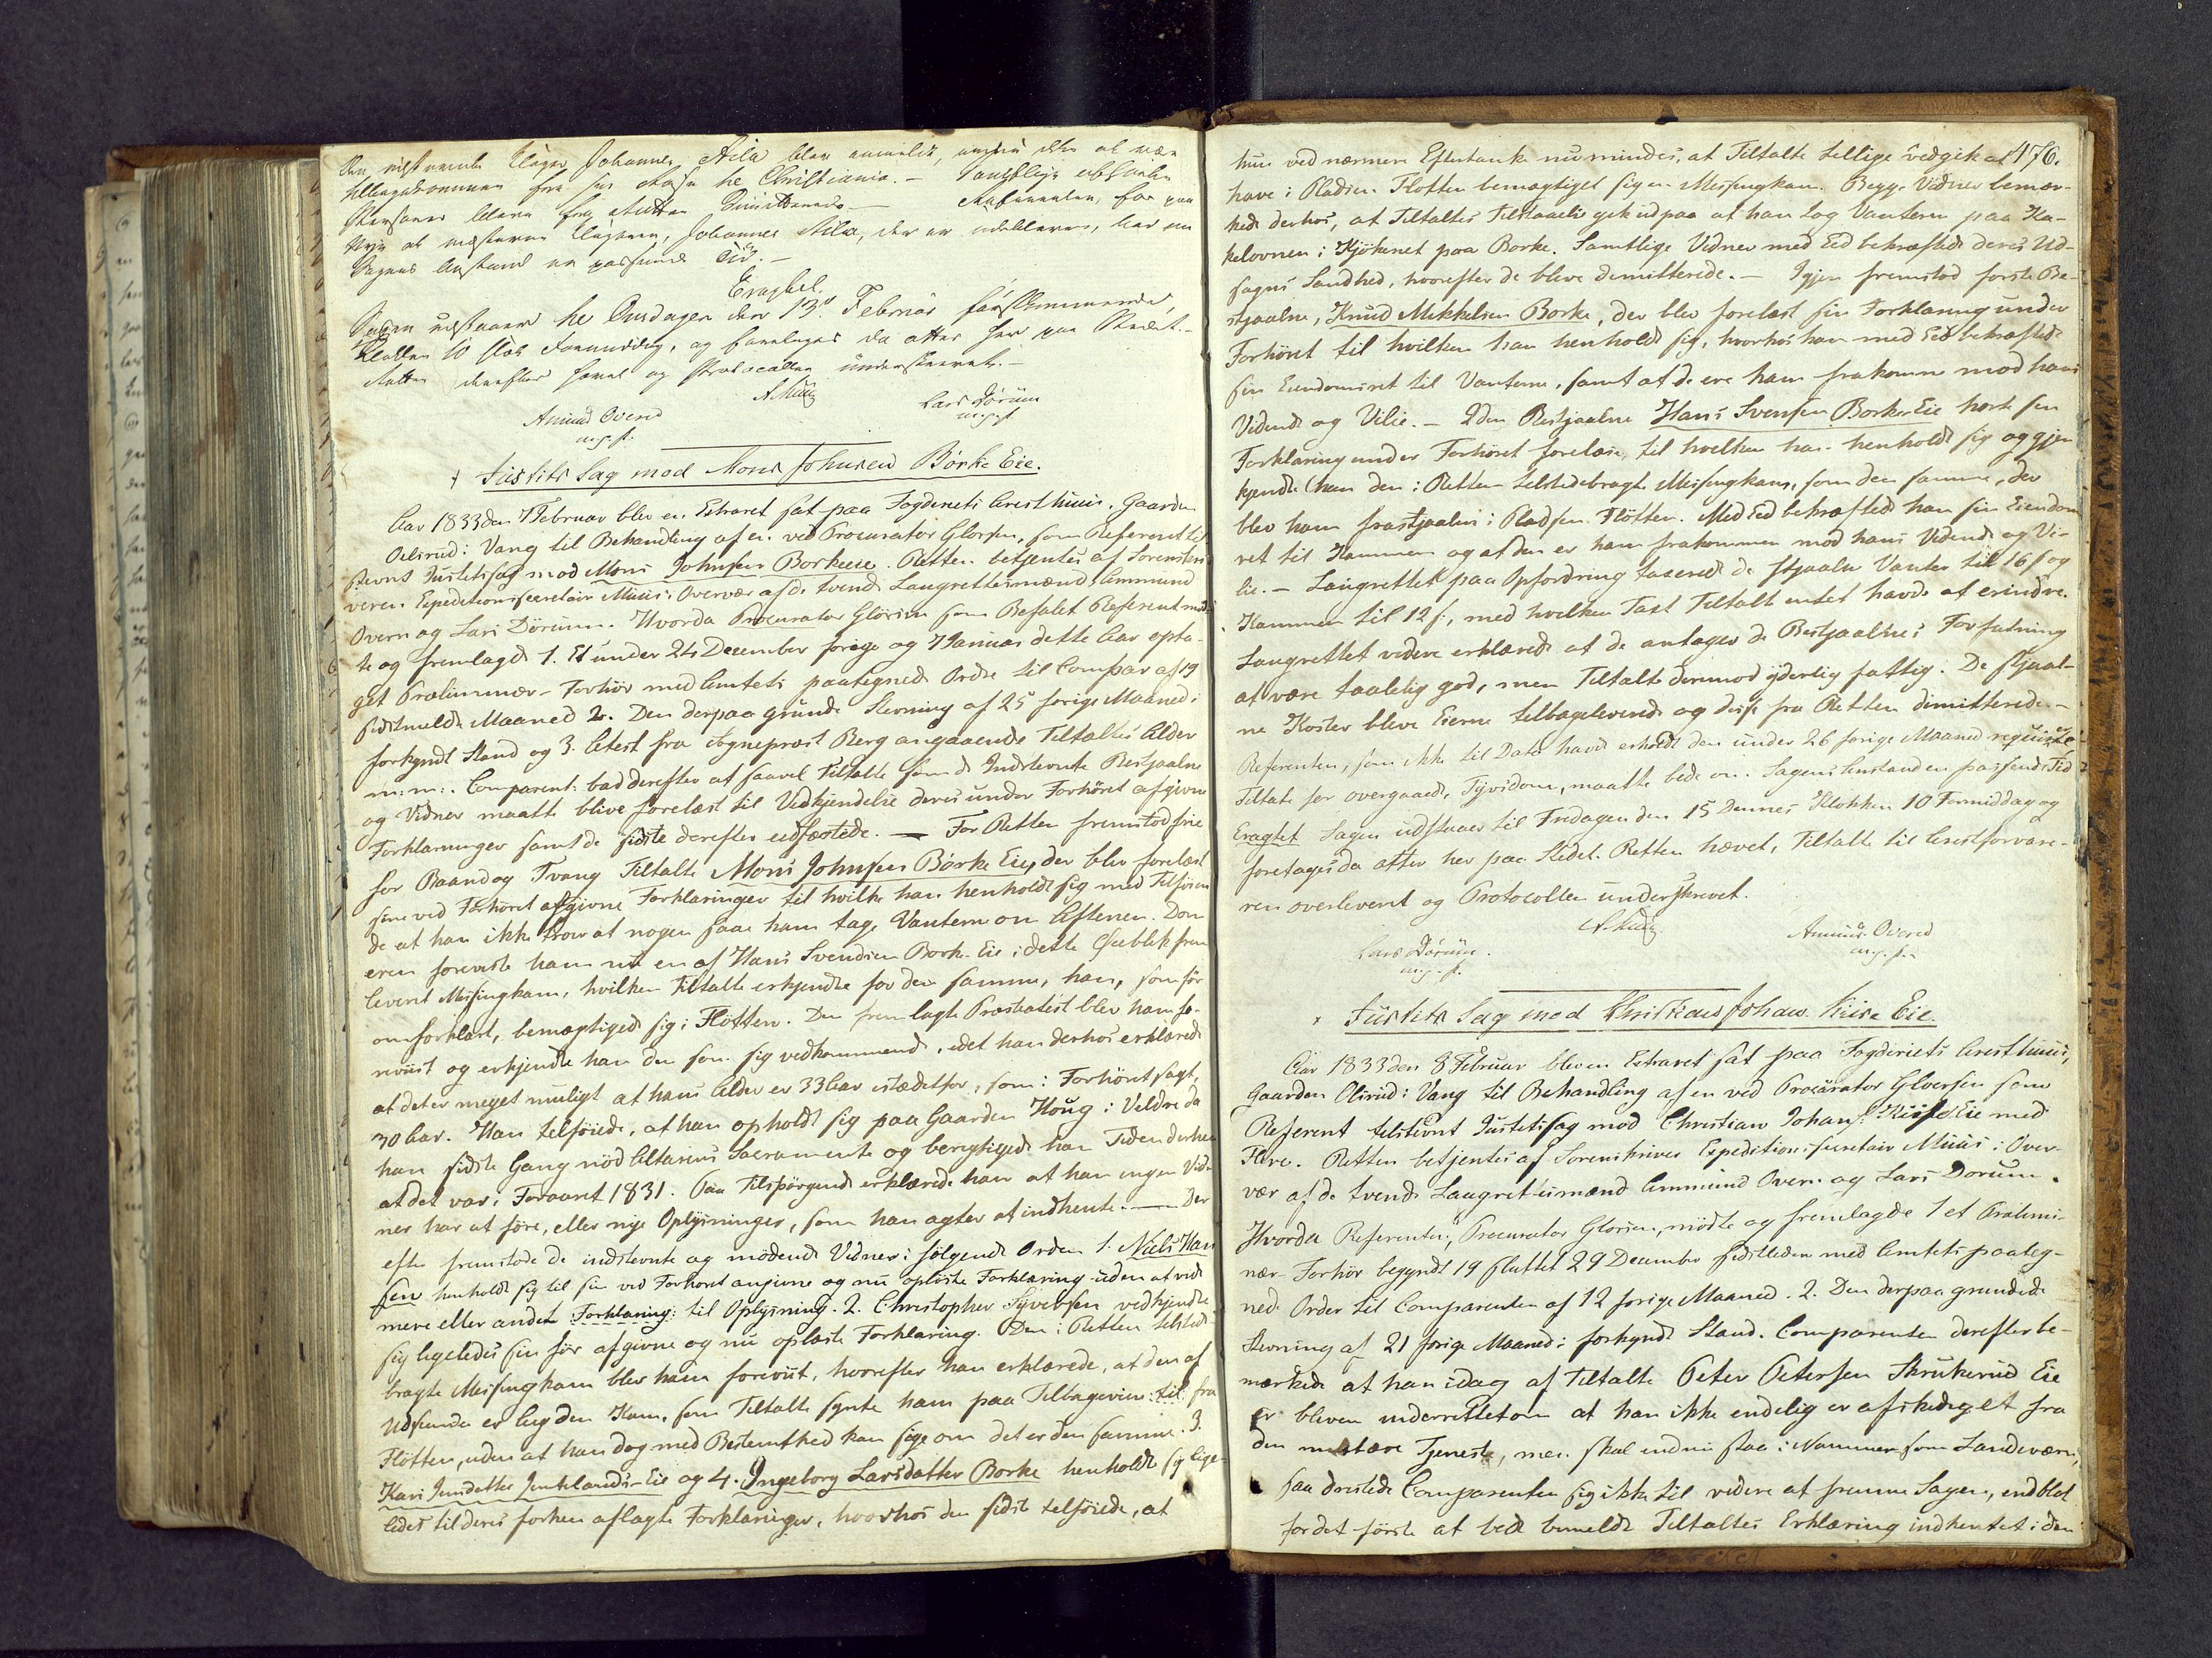 udeblevne Klager Johannes Aila blev anmeldt,
fra sin Reise til Christiania. —
Personer bleve fra Retten dimitterede —
at Klageren, Johannes Aila, der er udebleven, bad om
Sagens Anstand en passende Tid. —
Eragtet.
Sagen udstaaer til Onsdagen den 13de Februar førstkommende
Klokken 10 slæt Formiddag, og foretages da atter her paa Stedet. —
Retten derefter hævet og Protocollen underskrevet. —
Amund Overn
m.p.f.
Lars Dørum
m.p.f.
+ Justits Sag mod Mons Johnsen Børke Eie.
Aar 1833 den 7 Februar blev en Extraret sat paa Fogderiets Aresthuus, Gaarden
Olisrud i Vang til Behandling af en ved Procurator Glørsen, som Referent til
stevnt Justitssag mod Mons Johnsen Borkeeie. Retten betjentes af Sorenskri
veren Expeditionssecretair Muus i Overvær af de tvende Laugrettesmænd Ammund
Overn og Lars Dørum. Hvorda Procurator Glørsen som Befalet Referent mød
te og fremlagde 1. Et under 24 December forige og 7 Januar dette Aar opta-
get Præliminær-Forhør med Amtets paategnede Ordre til Compar. af 19
sidstmeldte Maaned 2. Den derpaa grunde Stevning af 25 forige Maaned i
forkyndt Stand og 3. Attest fra Sognepræst Berg angaaende Tiltaltes Alder
m: m:. Comparent: bad derefter at saavel Tiltalte som de Indstevnte Bestjaalne
og Vidner maatte blive forelæst til Vedkjendelse deres under Forhøret afgivne
Forklaringer samt de sidste derefter edfæstede. — For Retten fremstod frie
for Baand og Tvang Tiltalte Mons Johnsen Børke Eie, der blev forelæst
sine ved Forhøret afgivne Forklaringer til hvilke han henholdt sig med Tilføien
de at han ikke troer at nogen saae ham tage Vanterne om Aftenen. Dom
eren foreviste ham nu en af Hans Svendsen Bork. Eie i dette Øieblik frem
leveret Messingkam, hvilken Tiltalte erkjendte for den samme, han, som før
omforklart, bemægtigede sig i Fløtten. Den fremlagte Præsteattest blev ham fo-
reviist og erkjendte han den som sig vedkommende, idet han derhos erklærede
at det er meget muligt at hans Alder er 33 Aar istædetfor, som i Forhøret sagt,
30 Aar. Han tilføiede, at han opholdt sig paa Gaarden Houg i Veldre da
han sidste Gang nød Altarens Sacramente og berigtigede han Tiden derhen
at det var i Foraaret 1831. Paa Tilspørgende erklærede han at han ingen Vid
ner har at føre, eller nye Oplysninger, som han agter at indhente. — Der
efter fremstode de indstevnte og mødende Vidner i følgende Orden 1. Niels Han
sen henholdt sig til sin ved Forhøret angivne og nu oplæste Forklaring uden at vide
mere eller andet Forklaring: til Oplysning. 2. Christopher Syvertsen vedkjendte
sig ligeledes sin før afgivne og nu oplæste Forklaring. Den i Retten tilstede
bragte Messingkam blev ham foreviist, hvorefter han erklærede, at den af
Udseende er liig den Kam, som Tiltalte synte ham paa Tilbageveien :til: fra
Fløtten, uden at han dog med Bestemthed kan sige om det er den samme. 3.
Kari Jensdatter Jenklands-Eie og 4. Ingeborg Larsdatter Borke henholdt sig lige-
ledes til deres forhen aflagte Forklaringer, hvorhos den sidste tilføiede, at
176.
hun ved nærmere Eftertanke nu mindes, at Tiltalte tillige vedgik at
have i Pladsen Flotten bemægtiget sig en Messingkam. Begge Vidner bemær-
kede derhos, at Tiltaltes Tilstaaelse gik ud paa at han tog Vanterne paa Ka-
kelovnen i Kjøkenet paa Borke. Samtlige Vidner med Eed bekræftede deres Ud-
sagns Sandhed, hvorefter de bleve dimitterede. — Igjen fremstod første Be-
stjaalne, Knud Mikkelsen Borke, der blev forelæst sin Forklaring under
Forhøret til hvilken han henholdt sig, hvorhos han med Eed bekræftede
sin Eiendomsret til Vanterne, samt at de ere ham frakomne mod hans
Vidende og Vilie. — 2den Bestjaalne Hans Svensen Borker Eie hørte sin
Forklaring under Forhøret forelæse, til hvilken han henholdt sig og gjen
kjendte han den i Retten tilstedebragte Messingkam, som den samme, der
blev ham frastjaalen i Pladsen Fløtten. Med Eed bekræftede han sin Eiendoms
ret til Kammen og at den er ham frakommen mod hans Vidende og Vi-
lie. — Laugrettet paa Opfordring taxerede de stjaalne Vanter til 16 s og
Kammen til 12 s., med hvilken Taxt Tiltalte intet havde at erindre.
Laugrettet videre erklærede at de antager de Bestjaalnes Forfatning
at være taalelig god, men Tiltalte derimod yderlig fattig. De stjaal-
ne Koster bleve Eierne tilbageleverede og disse fra Retten dimitterede. —
Referenten, som ikke til Dato havde erholdt den under 26 forige Maaned reqvirerede
Tiltalte før overgaaede Tyvsdom, maatte bede om Sagens Anstand en passende Tid
Eragtet Sagen udstaaer til Fredagen den 15 Dennes Klokken 10 Formiddag og
foretages da atter her paa Stedet. Retten hævet, Tiltalte til Arestforvare-
ren overleveret og Protocollen underskrevet.
Lars Dørum.
m.p.f.
Amund Overn
m.p.f.
+ Justits Sag mod Christian Johans. Kiise Eie.
Aar 1833 den 8 Februar blev en Extraret sat paa Fogderiets Aresthuus,
Gaarden Olisrud i Vang til Behandling af en ved Procurator Gloersen som
Referent tilstevnt Justitssag mod Christian Johans. Kiise Eie med
Flere. Retten betjentes af Sorenskriver Expeditionssecretair Muus i Over-
vær af de tvende Laugrettesmænd Ammund Overn og Lars Dørum.
Hvorda Referenten, Procurator Glørsen, mødte og fremlagde 1 et Prælimi-
nær-Forhør begyndt 19 sluttet 29 December sidstleden med Amtets paateg-
nede Order til Comparenten af 12 forige Maaned. 2. Den derpaa grundede
Stevning af 21 forige Maaned i forkyndt Stand. Comparenten derefter be-
mærkede at han idag af Tiltalte Peter Petersen Skrukerud Eie
er bleven underrettet om at han ikke endelig er afskediget fra
den militære Tjeneste, men skal endnu staa i Nummer som Landeværn,
saa drestede Comparenten sig ikke til videre at fremme Sagen, end blot
for det første at bede bemeldte Tiltaltes Erklæring indhentet i den